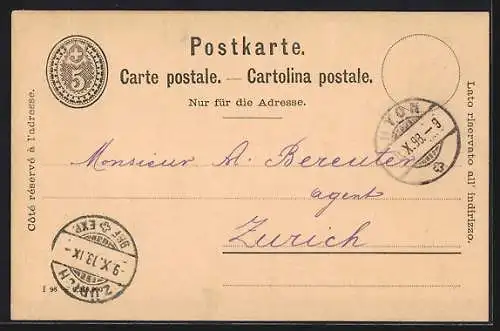 Postkarte.
5
Carte postale. — Cartolina postale.
Nur für die Adresse.
Côté réservé à l'adresse.
Lato riservato all' indirizzo.
NYON
X.93.-9
Monsieur A. Bereuter
agent
Zurich
EXP.
9.X.13.IX
ZÜRICH